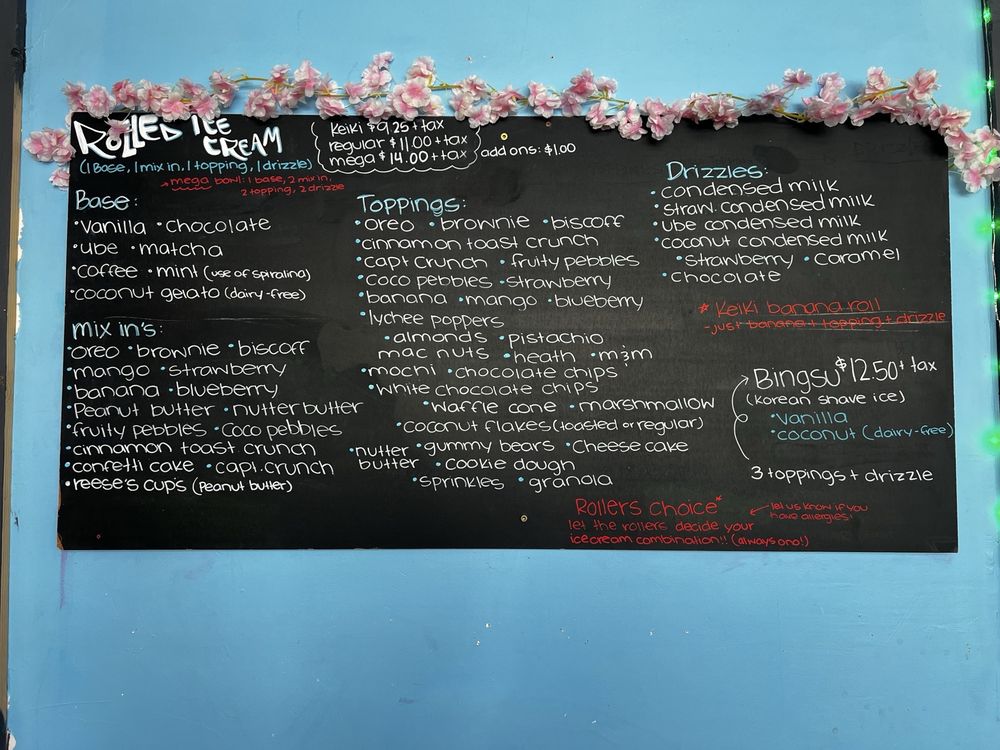 ROLLED ICE CREAM
(1 Base, 1 mix in, 1 topping, 1 drizzle)
mega bowl: 1 base, 2 mix in,
2 topping, 2 drizzle
Keiki $9.25 + tax
regular $11.00 + tax
mega $14.00 + tax
add ons: $1.00
Base:
• Vanilla • Chocolate
• ube • matcha
• coffee • mint (use of spiralina)
• coconut gelato (dairy-free)
mix in's:
• oreo • brownie • biscoff
• mango • strawberry
• banana • blueberry
• Peanut butter • nutter butter
• fruity pebbles • Coco pebbles
• cinnamon toast crunch
• confetti cake • capt. crunch
• reese's cups (Peanut butter)
Toppings:
• oreo • brownie • biscoff
• cinnamon toast crunch
• capt crunch • fruity pebbles
• coco pebbles • strawberry
• banana • mango • blueberry
• lychee poppers
• almonds • pistachio
mac nuts • heath • m&m
• mochi • chocolate chips
• white chocolate chips
• waffle cone • marshmallow
• coconut flakes (toasted or regular)
• nutter butter • gummy bears • Cheese cake
• cookie dough
• sprinkles • granola
Drizzles:
• condensed milk
• straw. condensed milk
• ube condensed milk
• coconut condensed milk
• strawberry • caramel
• chocolate
* Keiki banana roll
- just banana + topping + drizzle
Bingsu $12.50 + tax
(Korean shave ice)
• Vanilla
• coconut (dairy-free)
3 toppings + drizzle
Rollers choice*
let the rollers decide your
icecream combination!! (always ono!)
let us know if you
have allergies!